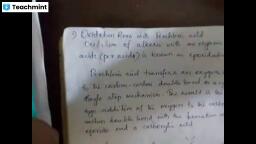 Teachmint
Oxidation Rxns with Perchloric acid
Oxidation of alkenes with an organic
acids (per acids) is known as epoxidation
Perchloric acid transfers an oxygen
to the carbon-carbon double
single step mechanism. The result is the
addition of the oxygen to the
carbon double bond with the formation
epoxide and a carboxylic acid